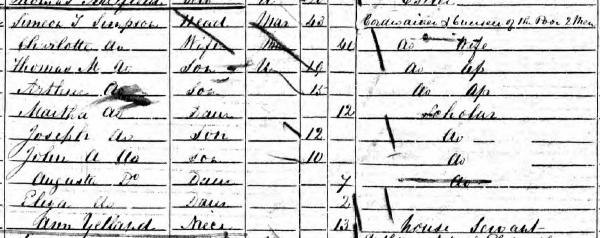 Simeon T Simpson Head Mar 43 Cordwainer & Overseer of the Poor 2 Men
Charlotte Do Wife Mar 41 Do Wife
Thomas M Do Son U 19 Do Ap
Arthur Do Son 15 Do Ap
Martha Do Daur 12 Scholar
Joseph Do Son 12 Do
John A Do Son 10 Do
Augusta Do Daur 7 Do
Eliza Do Daur 2
Ann Yelland Niece 13 House Servant